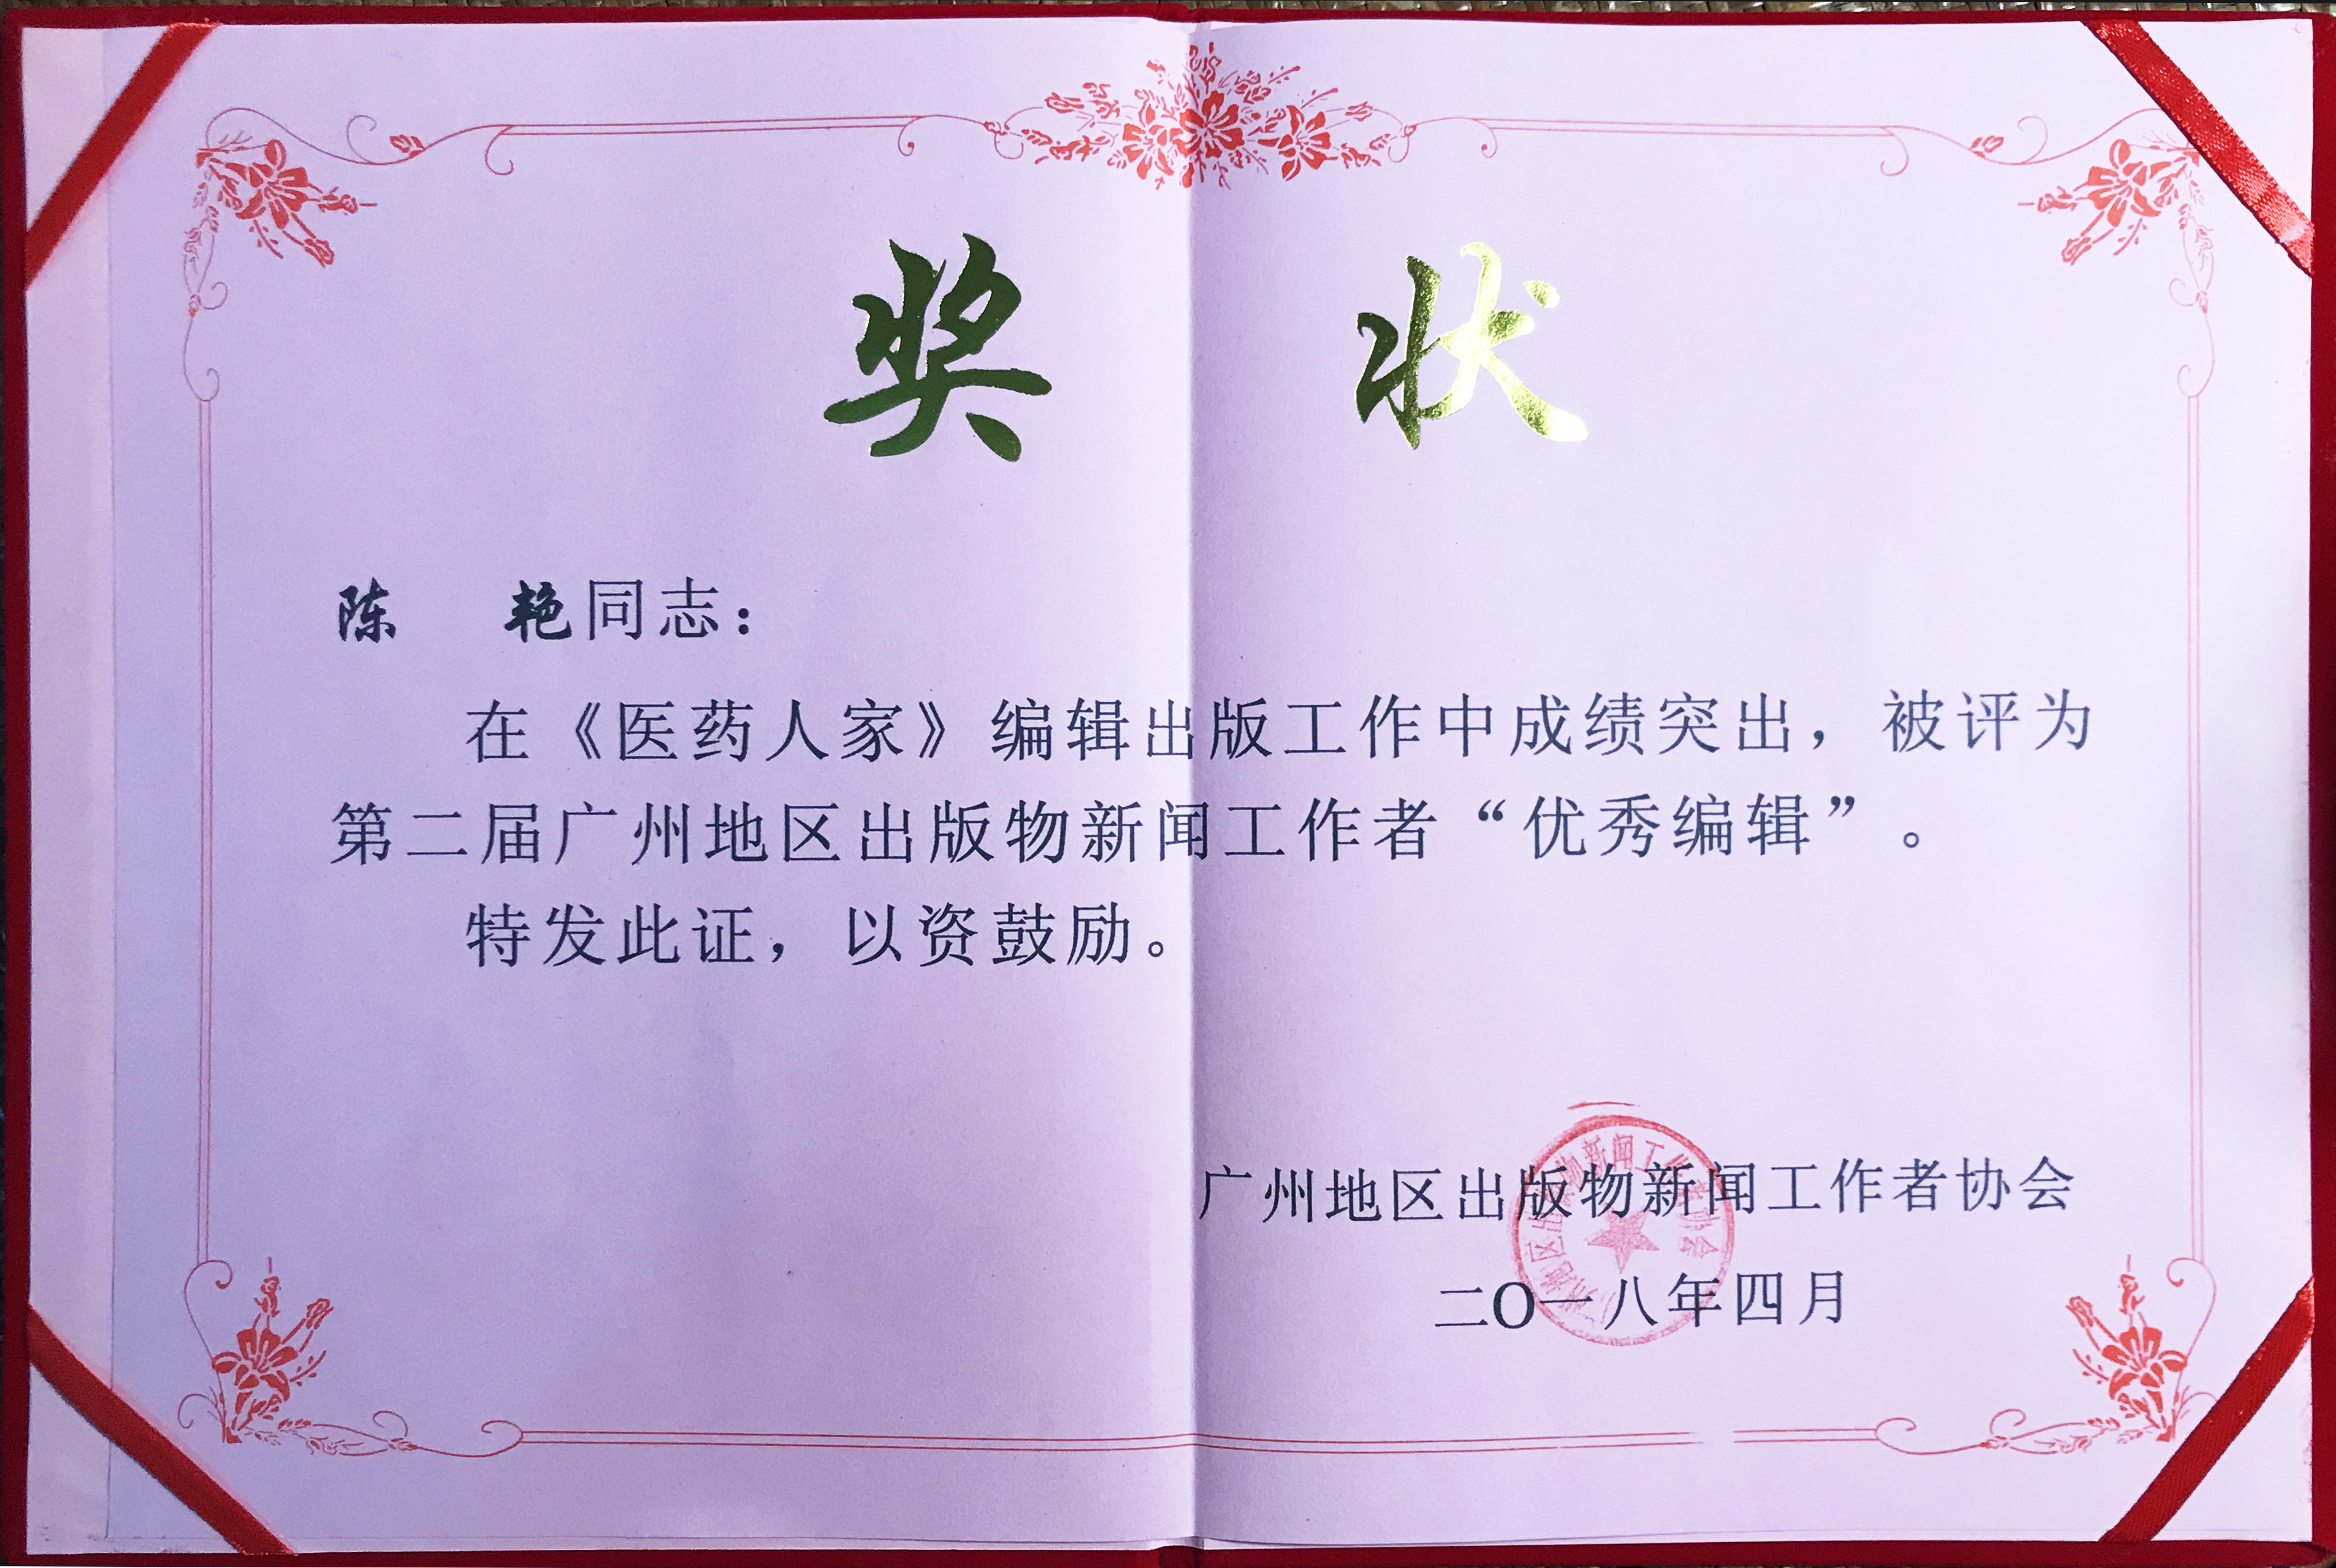 奖 状
陈 艳同志：
在《医药人家》编辑出版工作中成绩突出，被评为
第二届广州地区出版物新闻工作者“优秀编辑”。
特发此证，以资鼓励。
广州地区出版物新闻工作者协会
二〇一八年四月
广州地区出版物新闻工作者协会